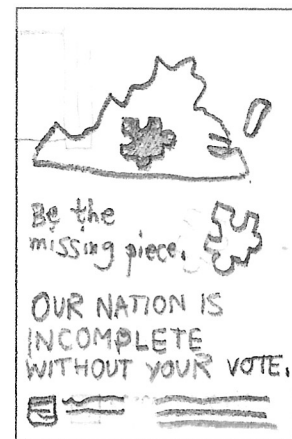 Be the
missing piece.
OUR NATION IS
INCOMPLETE
WITHOUT YOUR VOTE.